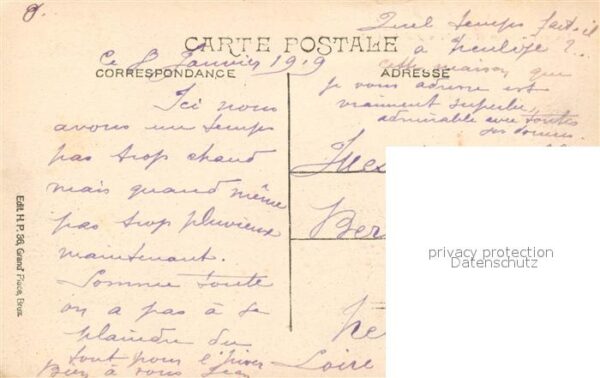 8.
CARTE POSTALE
Ce 8 Janvier 1919
CORRESPONDANCE
Ici nous
avons un temps
pas trop chaud
mais quand même
pas trop pluvieux
maintenant.
Somme toute
on a pas à se
plaindre du
tout pour l'hiver
Bien à vous Jean
Quel temps fait-il
à
cette maison que
ADRESSE
je vous adresse est
vraiment superbe,
admirable avec toutes
ses
Ber
Loire
privacy protection
Datenschutz
Edit H. P. 36, Grand Place, Brux.